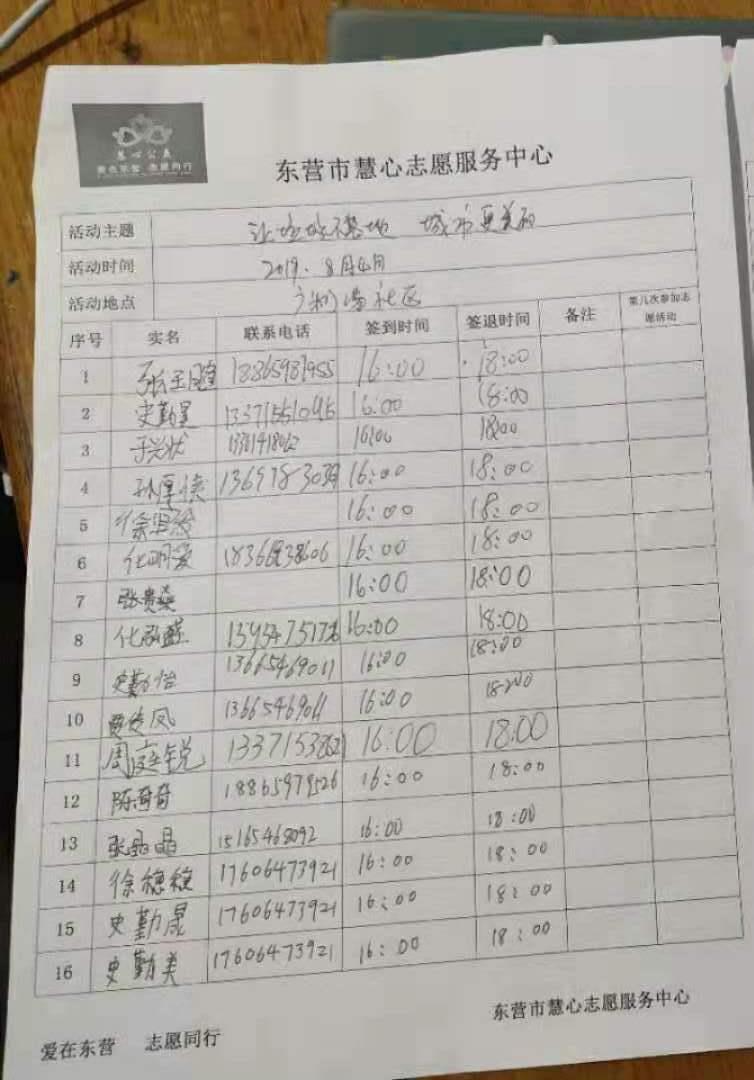 慧心公益
爱在东营 志愿同行
东营市慧心志愿服务中心
活动主题 让垃圾不落地 城市更美丽
活动时间 2019.8月4日
活动地点 社区
序号 实名 联系电话 签到时间 签退时间 备注 第几次参加志愿活动
1 18865981955 16:00 18:00
2 16:00 18:00
3 16:00 18:00
4 16:00 18:00
5 16:00 18:00
6 16:00 18:00
7 张贵燊 16:00 18:00
8 16:00 18:00
9 史勤怡 13665469011 16:00 18:00
10 13665469011 16:00 18:00
11 周庭锐 16:00 18:00
12 陈奇奇 18865979526 16:00 18:00
13 张晶晶 15165468092 16:00 18:00
14 徐穗穗 17606473921 16:00 18:00
15 史勤晟 17606473921 16:00 18:00
16 史勤美 17606473921 16:00 18:00
东营市慧心志愿服务中心
爱在东营 志愿同行